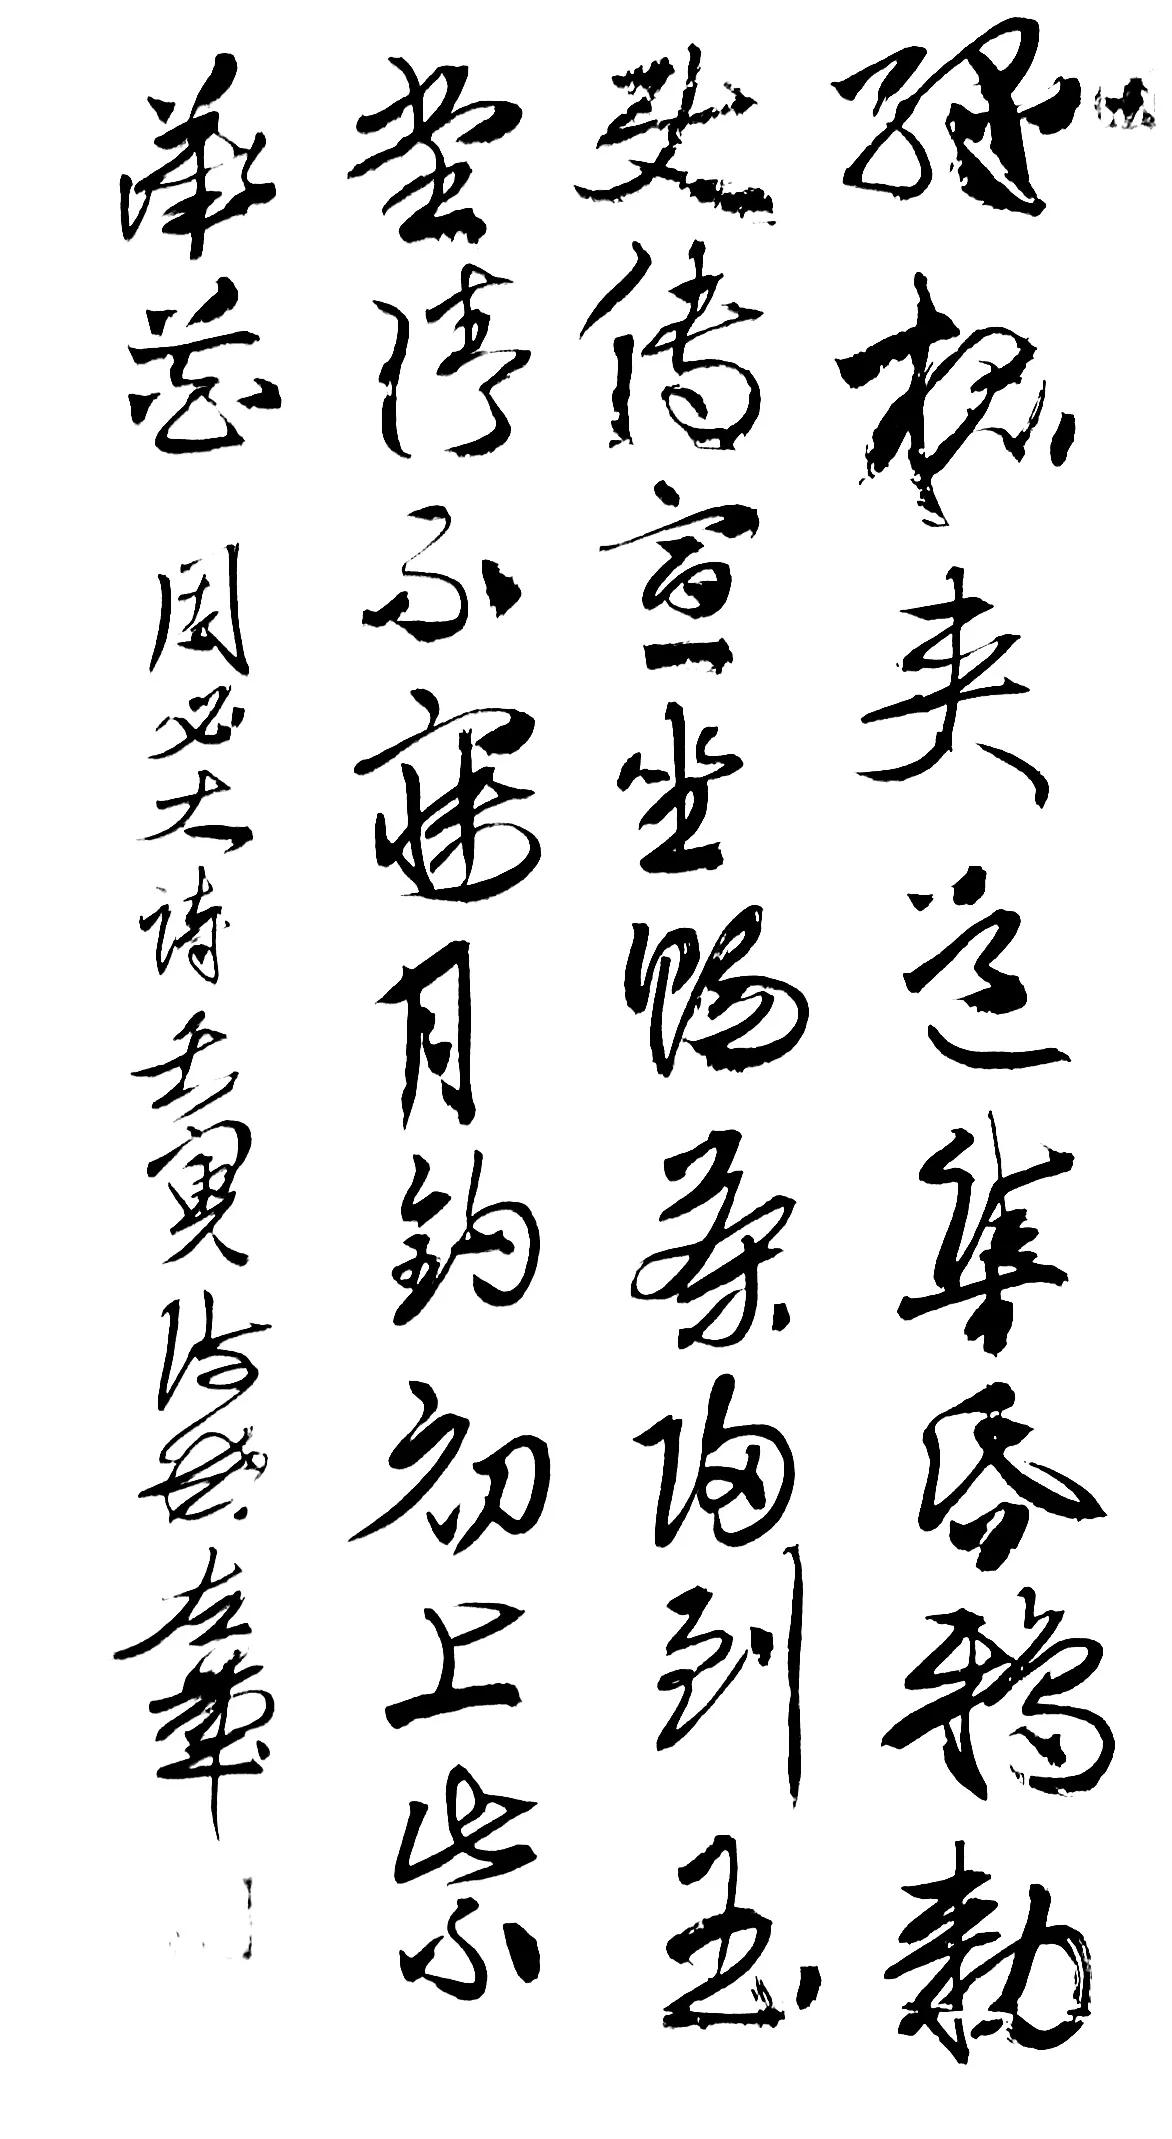 绿槐夹道集昏鸦勅
使传宣坐赐茶归到玉
堂清不寐月钩初上紫
薇花 周必大诗 壬寅 左笔